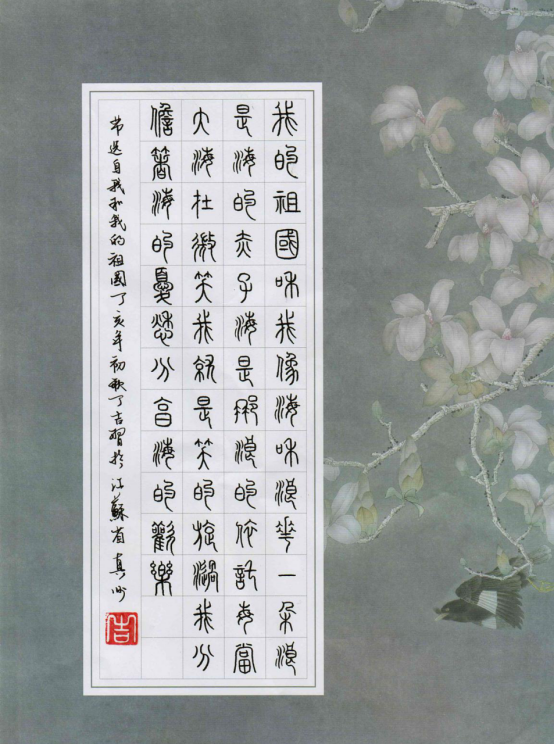 我的祖國和我像海和浪花一朵浪
是海的赤子海是那浪的依託每當
大海在微笑我就是笑的旋渦我分
擔著海的憂愁分享海的歡樂
节選自我和我的祖國丁亥年初秋丁吉習於江蘇省真州
吉